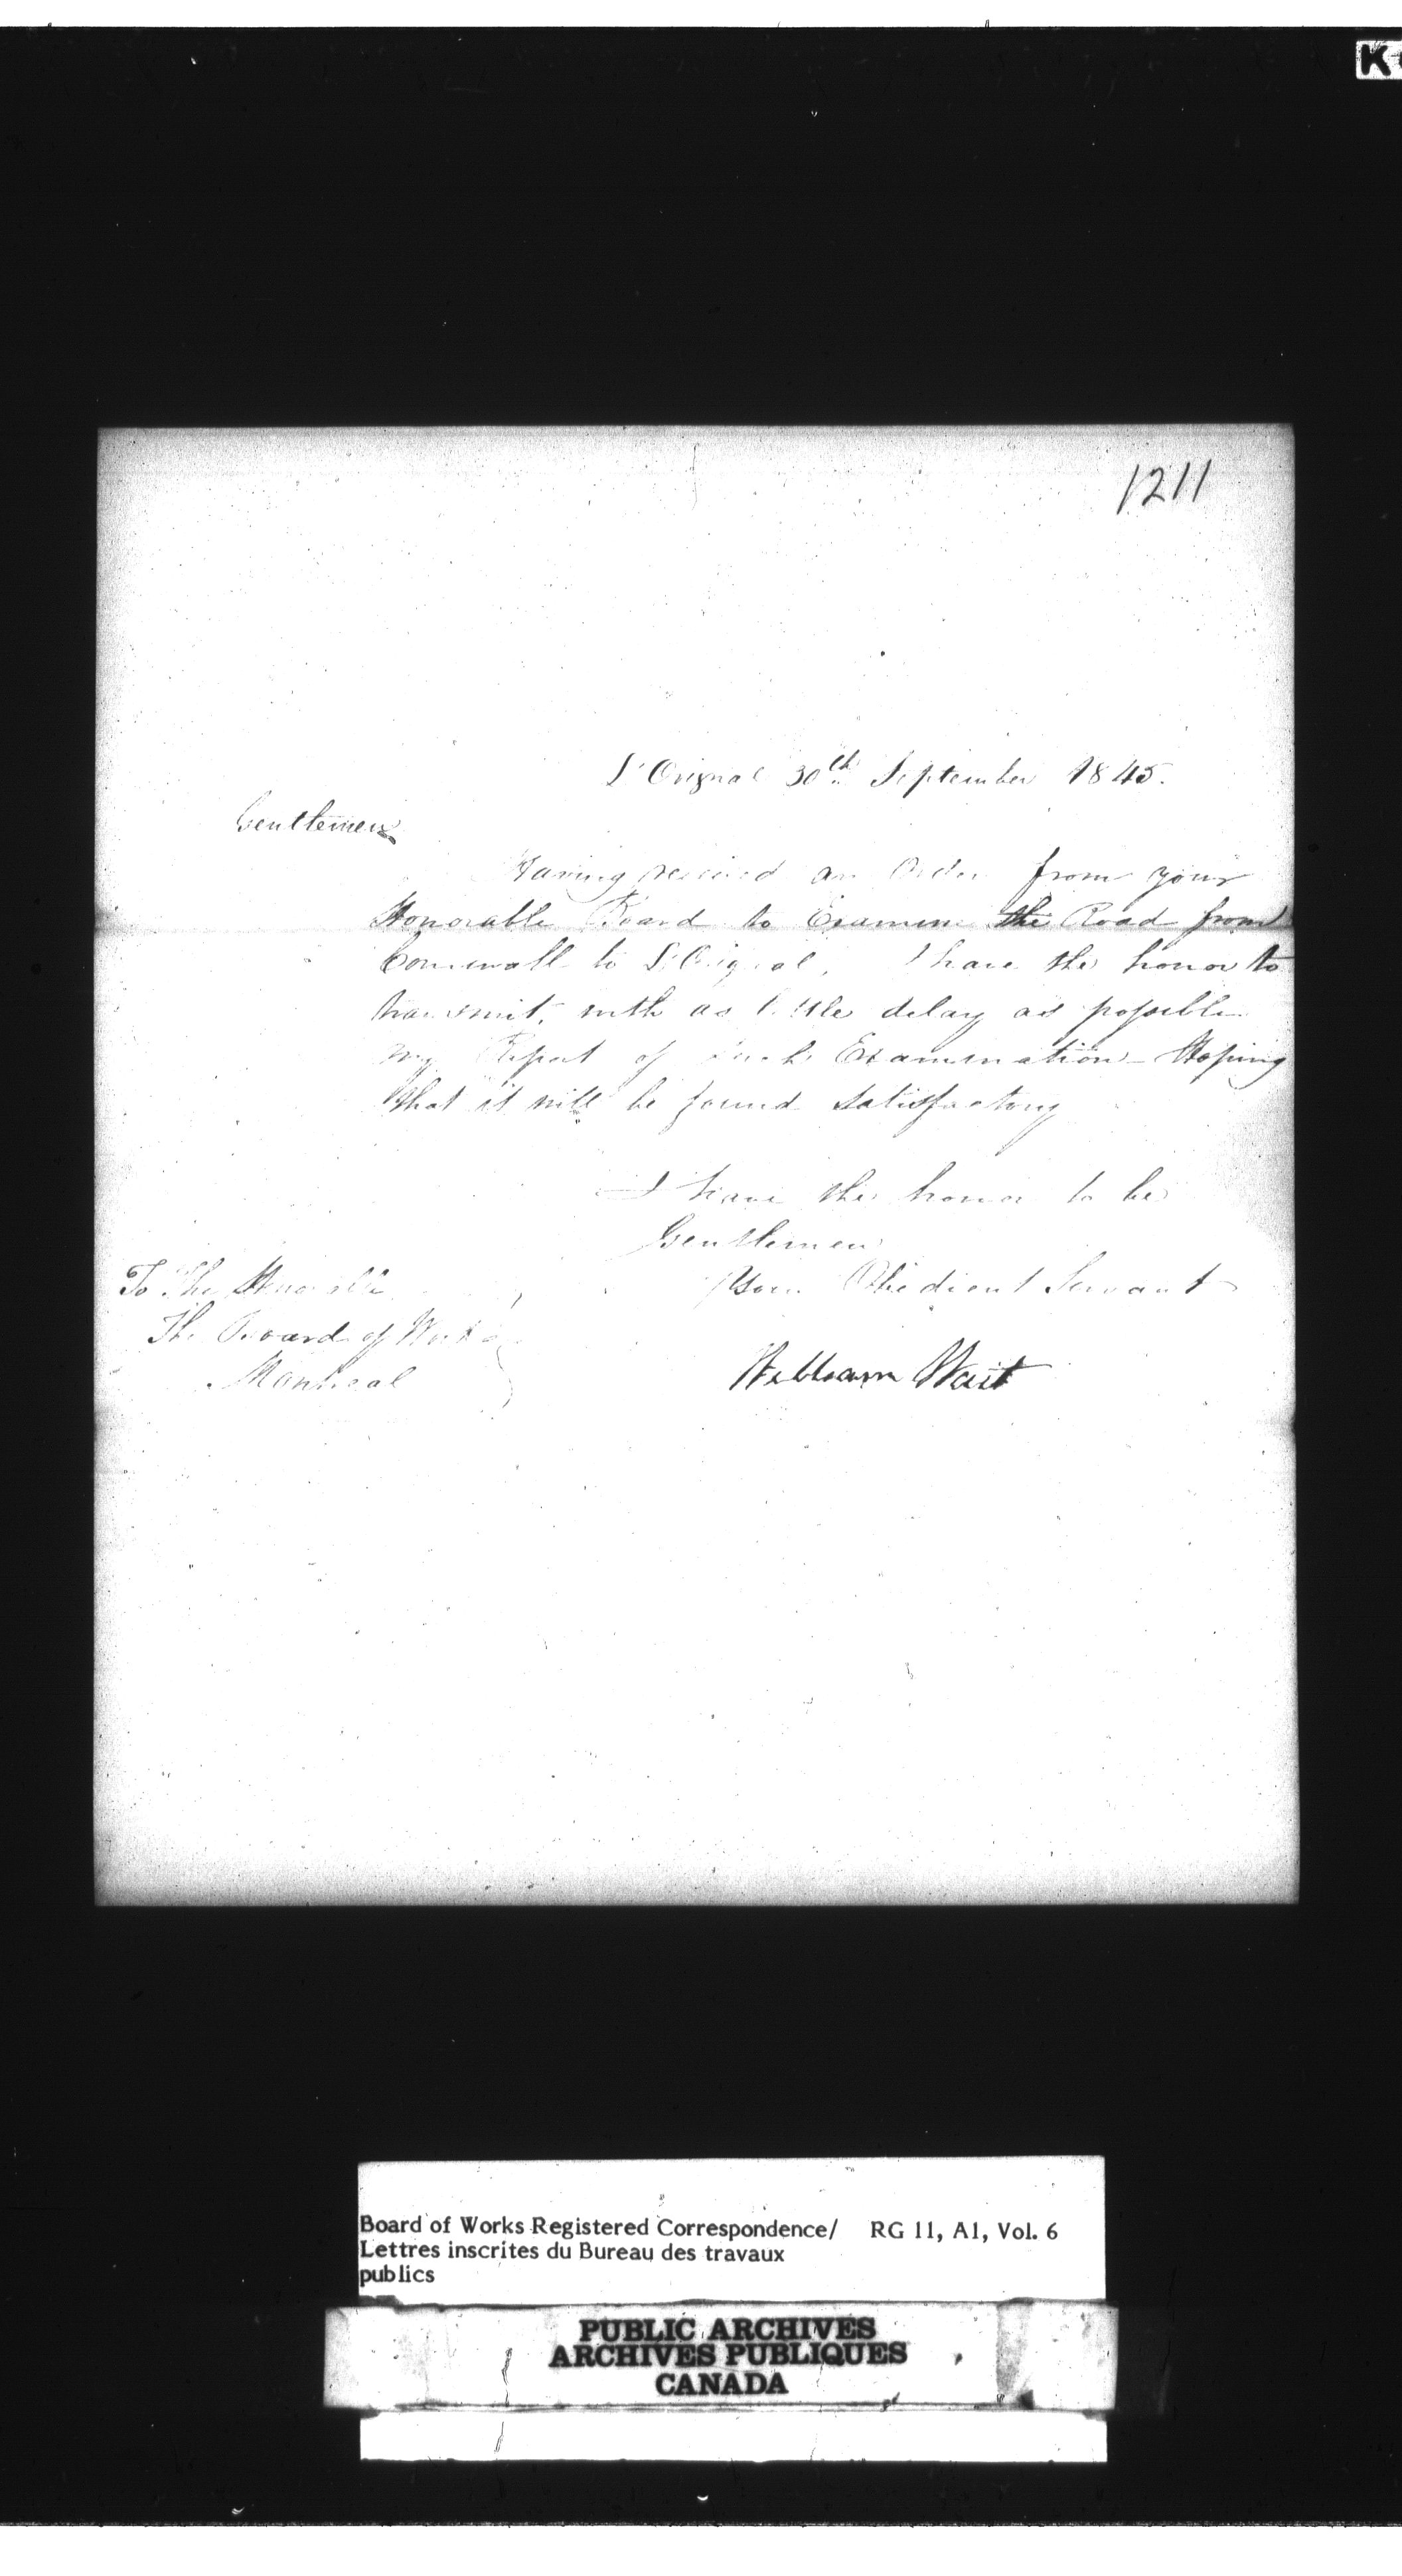 1211
L'Orignal 30th September 1845.
Gentlemen
Having received an Order from your
Honorable Board to Examine the Road from
Cornwall to L'Orignal, I have the honor to
transmit, with as little delay as possible
my Report of such Examination - Hoping
that it will be found satisfactory
I have the honor to be
Gentlemen
Your Obedient Servant
William Wait
To The Honorable
The Board of Works
Montreal
Board of Works Registered Correspondence/ RG 11, A1, Vol. 6
Lettres inscrites du Bureau des travaux
publics
PUBLIC ARCHIVES
ARCHIVES PUBLIQUES
CANADA